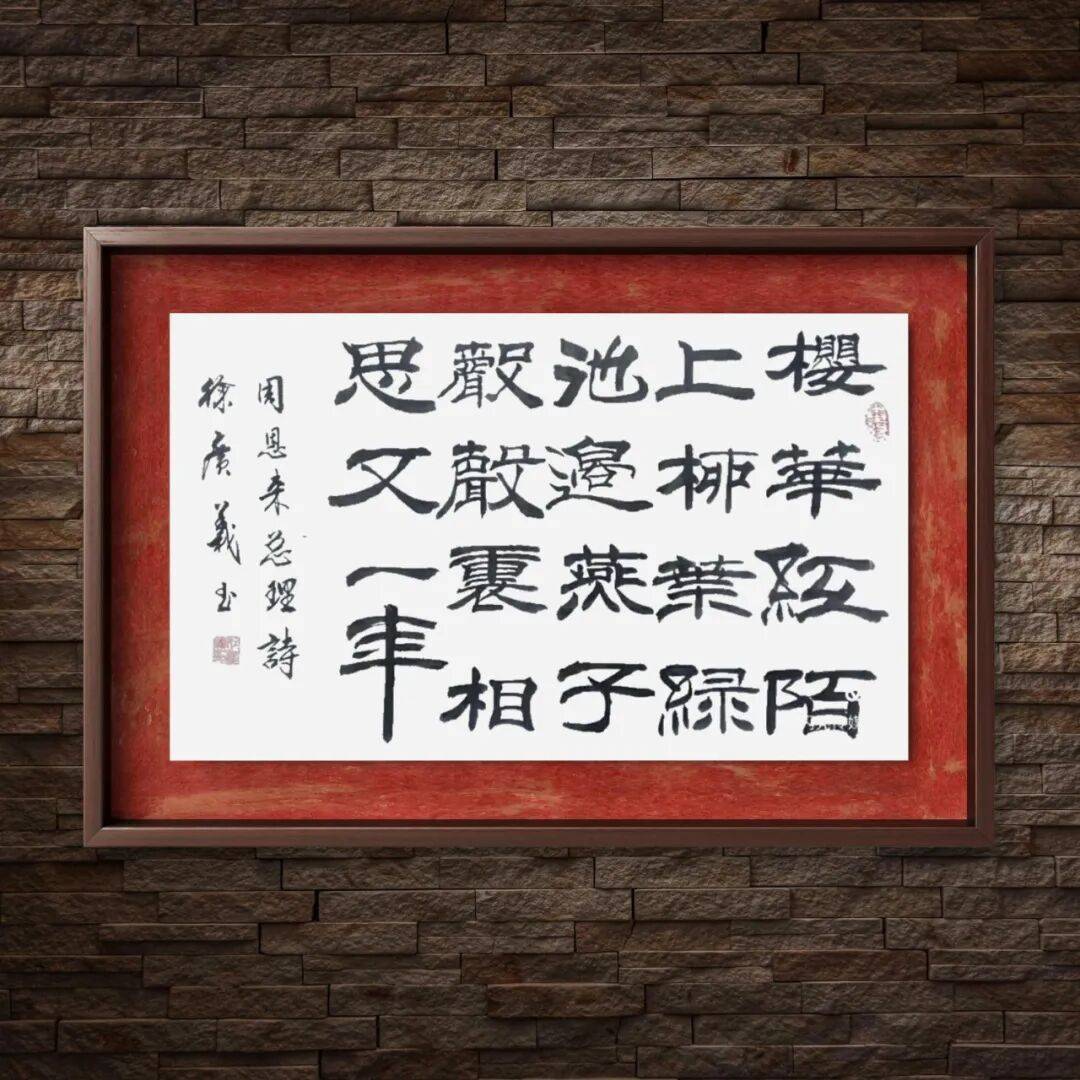 櫻華紅陌
上柳葉緑
池邊燕子
聲聲裏相
思又一年
周恩来总理詩
徐廣義书